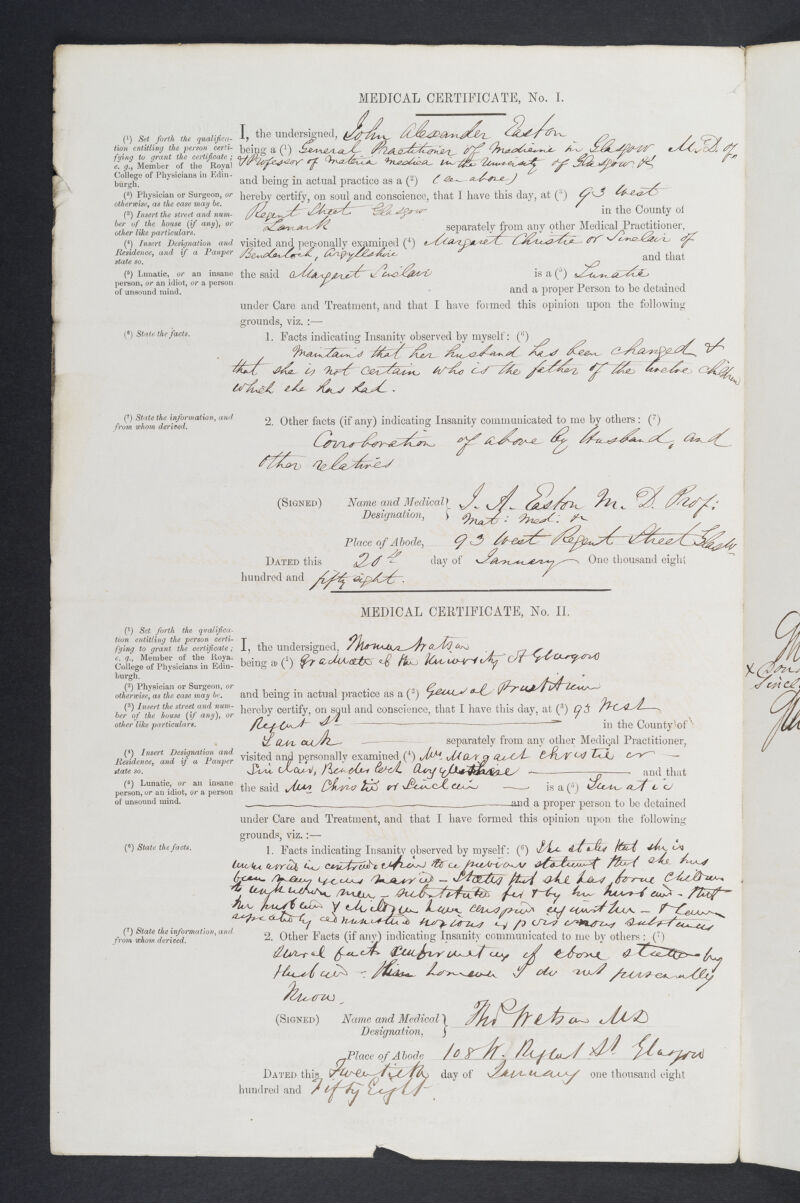 MEDICAL CERTIFICATE, No. I.
(1) Set forth the qualifica-
tion entitling the person certi-
fying to grant the certificate;
e. g., Member of the Royal
College of Physicians in Edin-
burgh.
(2) Physician or Surgeon, or
otherwise, as the case may be.
(3) Insert the street and num-
ber of the house (if any), or
other like particulars.
(4) Insert Designation and
Residence, and if a Pauper
state so.
(5) Lunatic, or an insane
person, or an idiot, or a person
of unsound mind.
(6) State the facts.
(7) State the information, and
from whom derived.
I, the undersigned, John Alexander Easton
being a (1) General Practitioner of Medicine in Glasgow M.D. of
& Professor of Materia Medica in the University of Glasgow &c
and being in actual practice as a (2) (see above)
hereby certify, on soul and conscience, that I have this day, at (3) 93 West
Regent Street Glasgow in the County of
Lanark separately from any other Medical Practitioner,
visited and personally examined (4) Margaret Christie or Sinclair of
Benderloch, Argyleshire and that
the said Margaret Sinclair is a (5) Lunatic
and a proper Person to be detained
under Care and Treatment, and that I have formed this opinion upon the following
grounds, viz. :—
1. Facts indicating Insanity observed by myself: (6)
Maintains that her husband has been changed &
that she is not certain who is the father of the twelve children
which she has had.
2. Other facts (if any) indicating Insanity communicated to me by others: (7)
Corroboration of above by Husband, and
other relatives
(SIGNED) Name and Medical
Designation,
J. A. Easton M. D. Prof:
Mat: Med: &c
Place of Abode, 93 West Regent Street Glasw
DATED this 20th day of January One thousand eight
hundred and fifty eight.
MEDICAL CERTIFICATE, No. II.
(1) Set forth the qualifica-
tion entitling the person certi-
fying to grant the certificate;
e. g., Member of the Royal
College of Physicians in Edin-
burgh.
(2) Physician or Surgeon, or
otherwise, as the case may be.
(3) Insert the street and num-
ber of the house (if any), or
other like particulars.
(4) Insert Designation and
Residence, and if a Pauper
state so.
(5) Lunatic, or an insane
person, or an idiot, or a person
of unsound mind.
(6) State the facts.
(7) State the information, and
from whom derived.
I, the undersigned, Thomas Watson
being a (1) Graduate of the University of Glasgow
and being in actual practice as a (2) General Practitioner
hereby certify, on soul and conscience, that I have this day, at (3) 93 West
Regent St in the County of
Lanark separately from any other Medical Practitioner,
visited and personally examined (4) Mrs Margaret Christie or
Sinclair, Benderloch Argyleshire and that
the said Mrs Christie or Sinclair is a (5) Lunatic
and a proper person to be detained
under Care and Treatment, and that I have formed this opinion upon the following
grounds, viz. :—
1. Facts indicating Insanity observed by myself: (6) She states that she is
unmarried in contradiction to a previous statement that she has
been many years married - States that she has borne children
to unknown men - substituted for & by her husband - that
her husband & children have conspired against her - & have
repeatedly administered noxious & poisonous substances
2. Other Facts (if any) indicating Insanity communicated to me by others: (7)
Several facts confirmatory of above stated by
Husband - these however I do not personally
know.
(SIGNED) Name and Medical
Designation,
Thos Watson MD
Place of Abode 108 W. Regent St Glasgow
DATED this Twentieth day of January one thousand eight
hundred and Fifty Eight